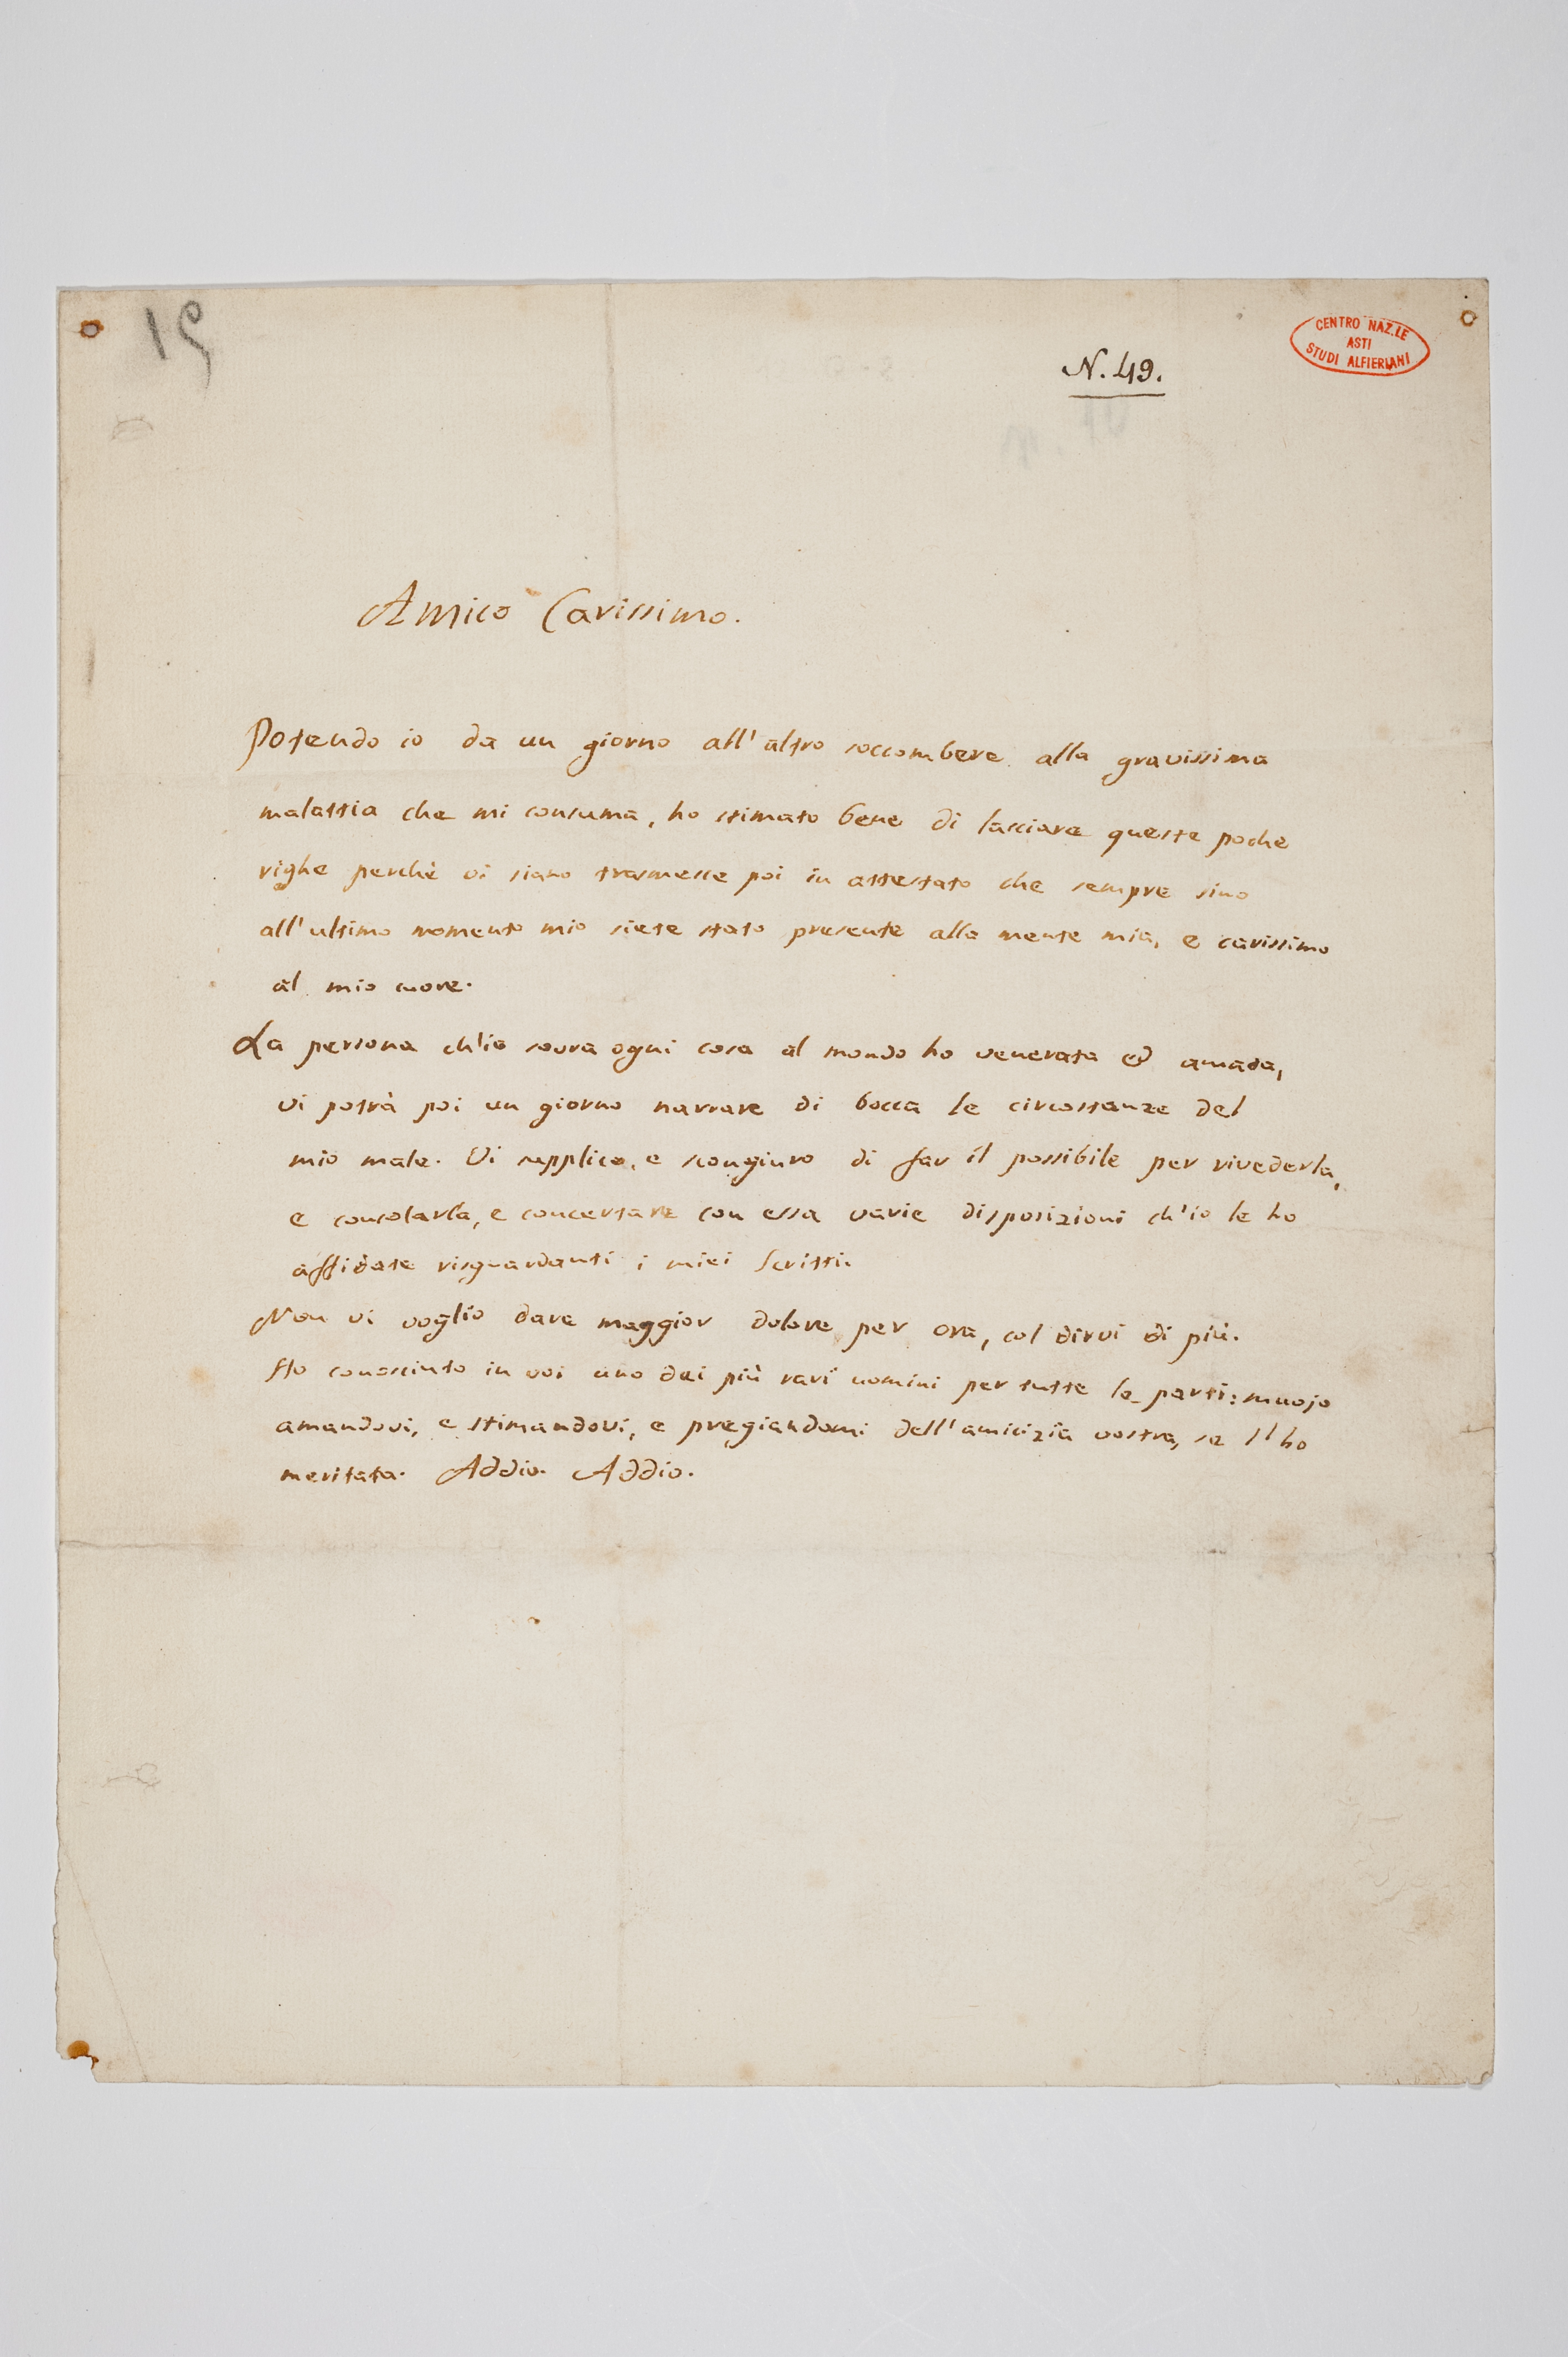 15
N. 49.
CENTRO NAZ.LE
ASTI
STUDI ALFIERIANI
Amico Carissimo.
Potendo io da un giorno all'altro soccombere alla gravissima
malattia che mi consuma, ho stimato bene di lasciare queste poche
righe perchè vi siano trasmesse poi in attestato che sempre sino
all'ultimo momento mio siete stato presente alla mente mia, e carissimo
al mio cuore.
La persona ch'io sovra ogni cosa al mondo ho venerata ed amata,
vi potrà poi un giorno narrare di bocca le circostanze del
mio male. Vi supplico, e scongiuro di far il possibile per rivederla,
e consolarla, e concertare con essa varie disposizioni ch'io le ho
affidate risguardanti i miei Scritti.
Non vi voglio dare maggior dolore per ora, col dirvi di più.
Ho conosciuto in voi uno dei più rari uomini per tutte le parti: muojo
amandovi, e stimandovi, e pregiandomi dell'amicizia vostra, se l'ho
meritata. Addio. Addio.